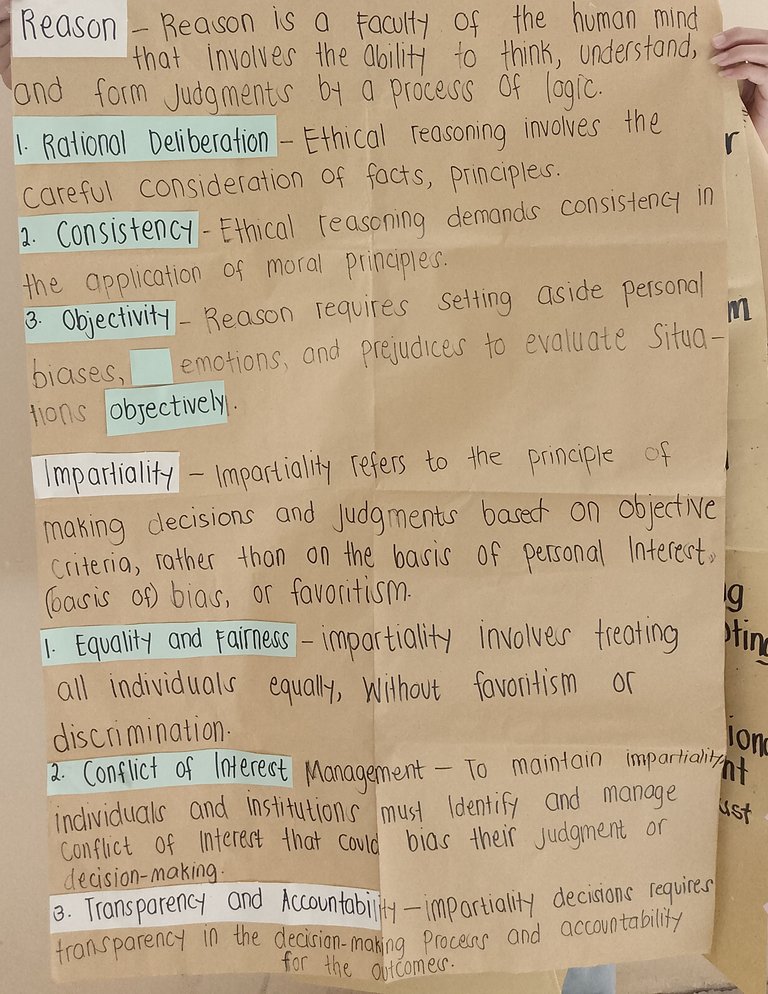 Reason – Reason is a Faculty of the human mind
that involves the ability to think, understand,
and form Judgments by a process of logic.
1. Rational Deliberation – Ethical reasoning involves the
careful consideration of facts, principles.
2. Consistency – Ethical reasoning demands consistency in
the application of moral principles.
3. Objectivity – Reason requires setting aside personal
biases, emotions, and prejudices to evaluate Situa–
tions objectively.
Impartiality – Impartiality refers to the principle of
making decisions and judgments based on objective
criteria, rather than on the basis of personal Interest,
(basis of) bias, or favoritism.
1. Equality and Fairness – impartiality involves treating
all individuals equally, Without favoritism or
discrimination.
2. Conflict of Interest Management – To maintain impartiality,
individuals and institutions must Identify and manage
Conflict of Interest that could bias their judgment or
decision-making.
3. Transparency and Accountability – impartiality decisions requires
transparency in the decision-making Process and accountability
for the outcomes.